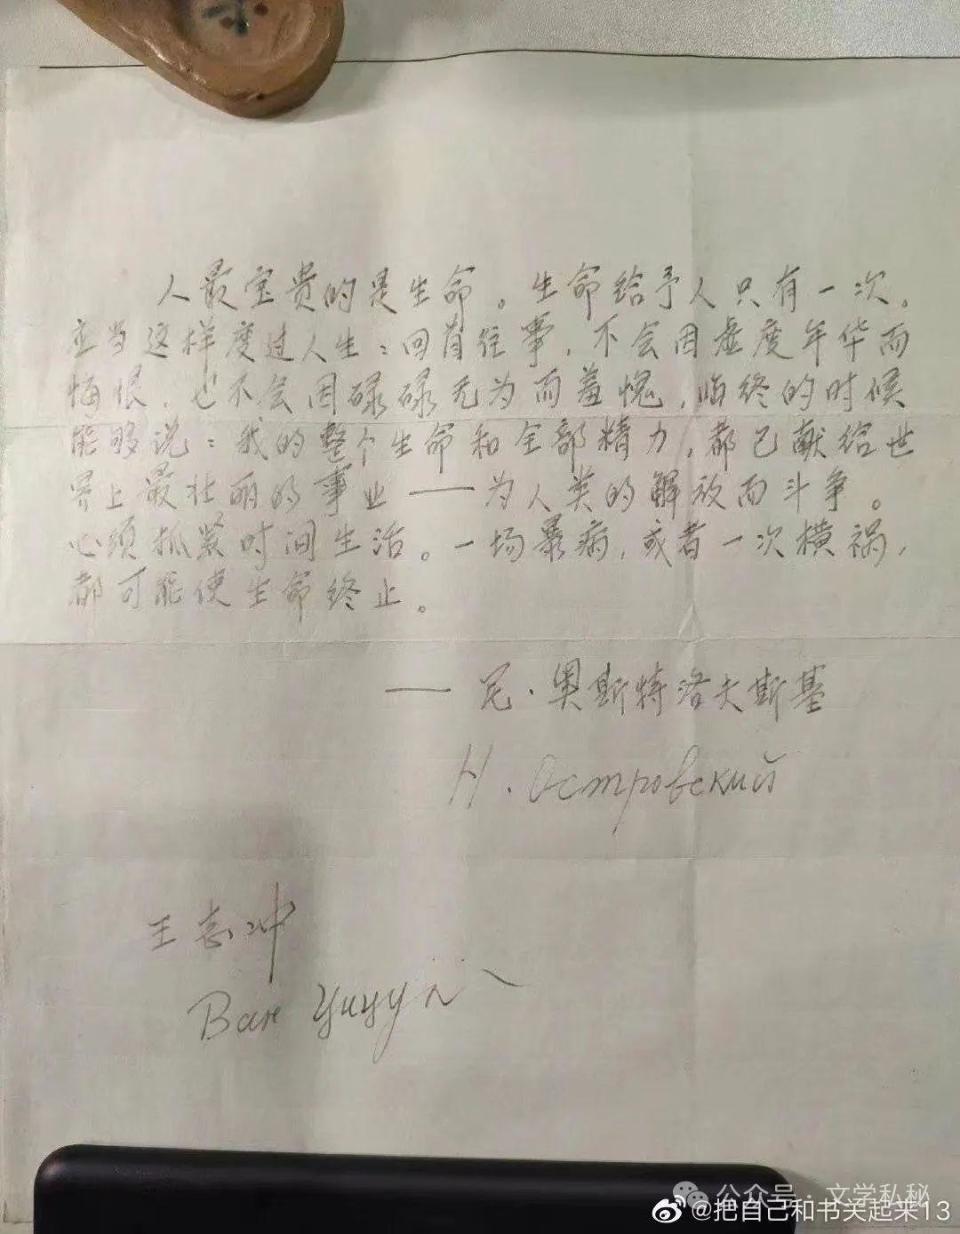 人最宝贵的是生命。生命给予人只有一次。
应当这样度过人生：回首往事，不会因虚度年华而
悔恨，也不会因碌碌无为而羞愧，临终的时候
能够说：我的整个生命和全部精力，都已献给世
界上最壮丽的事业——为人类的解放而斗争。
必须抓紧时间生活。一场暴病，或者一次横祸，
都可能使生命终止。
——尼·奥斯特洛夫斯基
Н. Островский
王志冲
Ван Чичун
公众号·文学私秘
@把自己和书关起来13